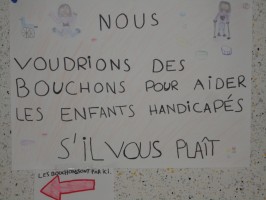 NOUS
VOUDRIONS DES
BOUCHONS POUR AIDER
LES ENFANTS HANDICAPÉS
S'IL VOUS PLAÎT
LES BOUCHONS SONT PAR ICI.